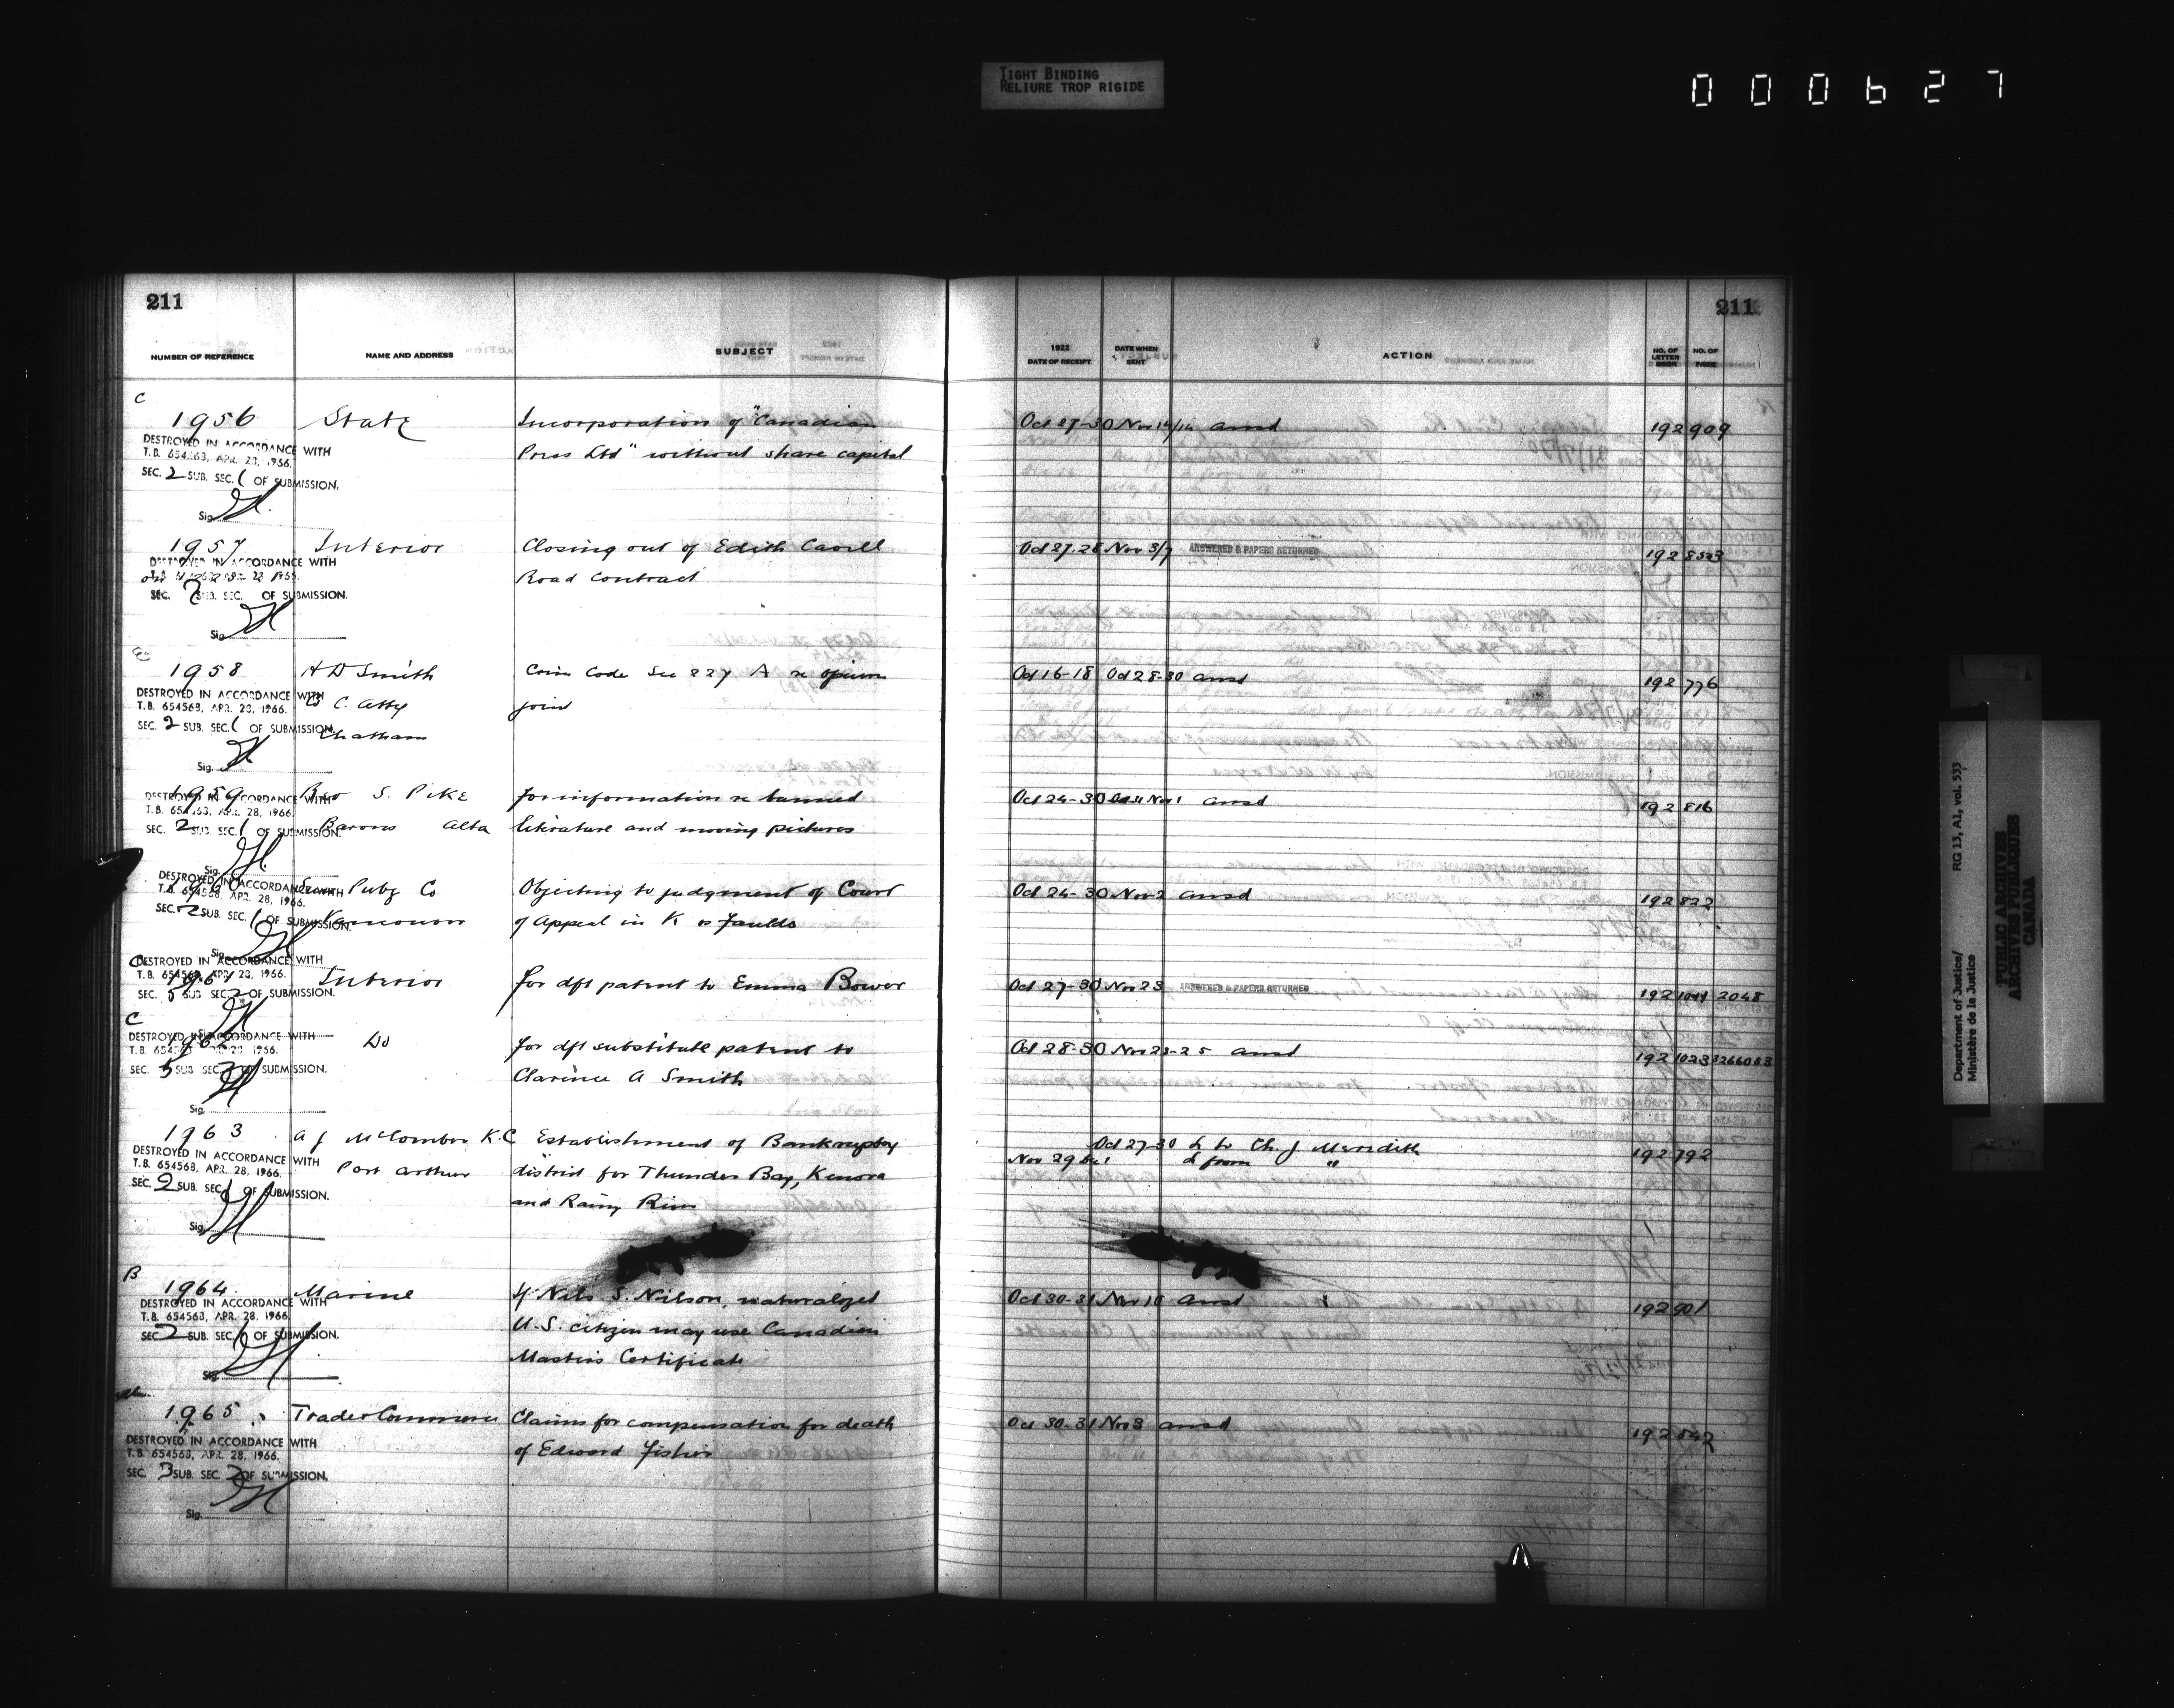 TIGHT BINDING
RELIURE TROP RIGIDE
000627
211
211
NUMBER OF REFERENCE NAME AND ADDRESS SUBJECT 1922 DATE OF RECEIPT DATE WHEN SENT ACTION NO. OF LETTER BOOK NO. OF PAGE
C
1956 State Incorporation of "Canadian Oct 27-30 Nov 14/14 ansd 192 909
DESTROYED IN ACCORDANCE WITH
T.B. 654568, APR. 28, 1966. Press Ltd" without share capital
SEC. 2 SUB. SEC. 1 OF SUBMISSION.
Sig.
1957 Interior Closing out of Edith Cavell Oct 27-28 Nov 3/7 ANSWERED & PAPERS RETURNED 192 853
DESTROYED IN ACCORDANCE WITH
Road Contract
SEC. 2 SUB. SEC. OF SUBMISSION.
Sig.
1958 H D Smith Crim Code Sec 227 A re opium Oct 16-18 Oct 28-30 ansd 192 776
DESTROYED IN ACCORDANCE WITH
T.B. 654568, APR. 28, 1966. C. Atty joint
SEC. 2 SUB. SEC. 1 OF SUBMISSION.
Chatham
Sig.
1959 Geo S. Pike for information re banned Oct 24-30 Nov 1 ansd 192 816
DESTROYED IN ACCORDANCE WITH
T.B. 654568, APR. 28, 1966.
SEC. 2 SUB. SEC. 1 OF SUBMISSION. Barons Alta literature and moving pictures
Sig.
DESTROYED IN ACCORDANCE WITH
1960 Sun Pubg Co Objecting to judgment of Court Oct 24-30 Nov 2 ansd 192 822
T.B. 654568, APR. 28, 1966.
SEC. 2 SUB. SEC. 1 OF SUBMISSION. Vancouver of Appeal in K vs Faulds
Sig.
C
DESTROYED IN ACCORDANCE WITH
T.B. 654568, APR. 28, 1966.
1961 Interior for dft patent to Emma Bower Oct 27-30 Nov 23 ANSWERED & PAPERS RETURNED 192 2048
SEC. 5 SUB SEC. 2 OF SUBMISSION.
C
DESTROYED IN ACCORDANCE WITH
1962 Do for dft substitute patent to Oct 28-30 Nov 23-25 ansd 192 1023
SEC. 5 SUB SEC. 2 OF SUBMISSION. Clarence A Smith
Sig.
1963 A J McComber K.C Establishment of Bankruptcy Oct 27-30 L to Ch. J. Meredith 192 792
DESTROYED IN ACCORDANCE WITH
T.B. 654568, APR. 28, 1966. Port Arthur district for Thunder Bay, Kenora Nov 29 Dec 1 L from "
SEC. 2 SUB. SEC. 1 OF SUBMISSION. and Rainy River
Sig.
B
1964 Marine If Nils S. Nilson, naturalized Oct 30-31 Nov 10 ansd 192 901
DESTROYED IN ACCORDANCE WITH
T.B. 654568, APR. 28, 1966. U.S. citizen may use Canadian
SEC. 2 SUB. SEC. 1 OF SUBMISSION.
Masters Certificate
Sig.
1965 Trade & Commerce Claims for compensation for death Oct 30-31 Nov 3 ansd 192 842
DESTROYED IN ACCORDANCE WITH
T.B. 654568, APR. 28, 1966. of Edward Fisher
SEC. 3 SUB. SEC. 2 OF SUBMISSION.
Sig.
Department of Justice/ RG 13, A1, vol. 533
Ministère de la Justice
PUBLIC ARCHIVES
ARCHIVES PUBLIQUES
CANADA